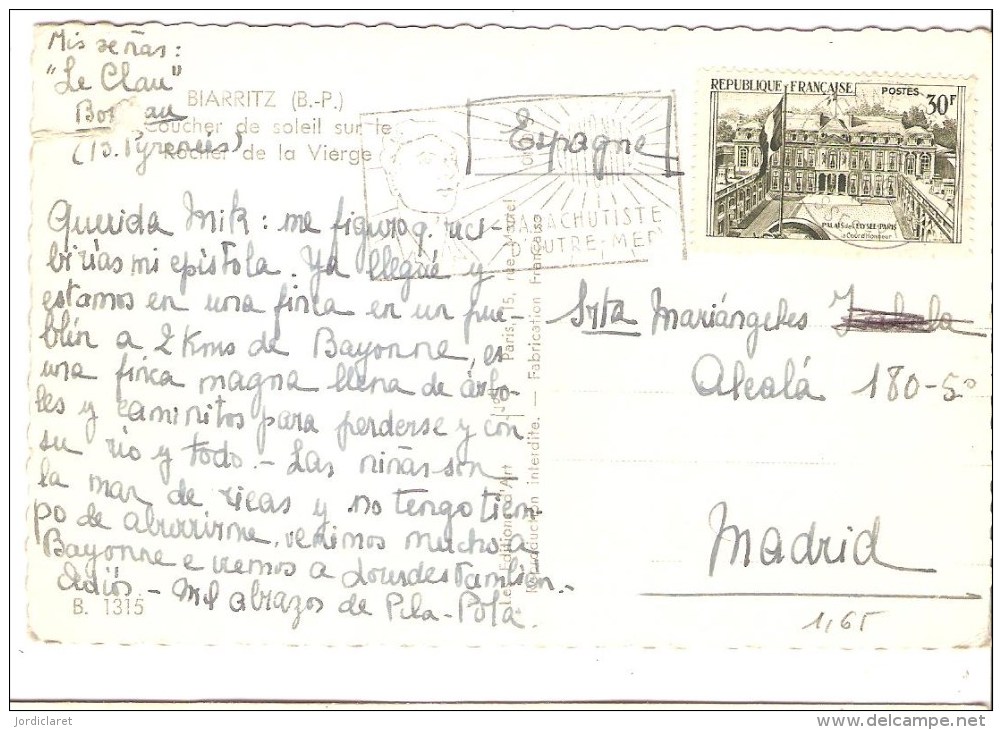 Mis señas:
"Le Clau"
(B. Pyrenées)
BIARRITZ (B.-P.)
Coucher de soleil sur le
Rocher de la Vierge
Espagne
PARACHUTISTE
D'OUTRE-MER
REPUBLIQUE FRANÇAISE
POSTES
30F
PALAIS de l'ELYSÉE-PARIS
Cour d'Honneur
Querida Mik: me figuro q. reci-
birías mi epistola. Ya llegué y
estamos en una finca en un pue-
blín a 2 Kms de Bayonne, es
una finca magna llena de árbo-
les y caminitos para perderse y con
su río y todo.- Las niñas son
la mar de ricas y no tengo tiem
po de aburrirme, venimos mucho a
Bayonne e iremos a Lourdes también.-
Adiós.- Mil abrazos de Pila-Pola.
B. 1315
Editions d'Art
Paris, 15, rue
Reproduction interdite. — Fabrication Française
Srta Mariángeles
Alcalá 180-5º
Madrid
1,65
jordiclaret
delcampe.net